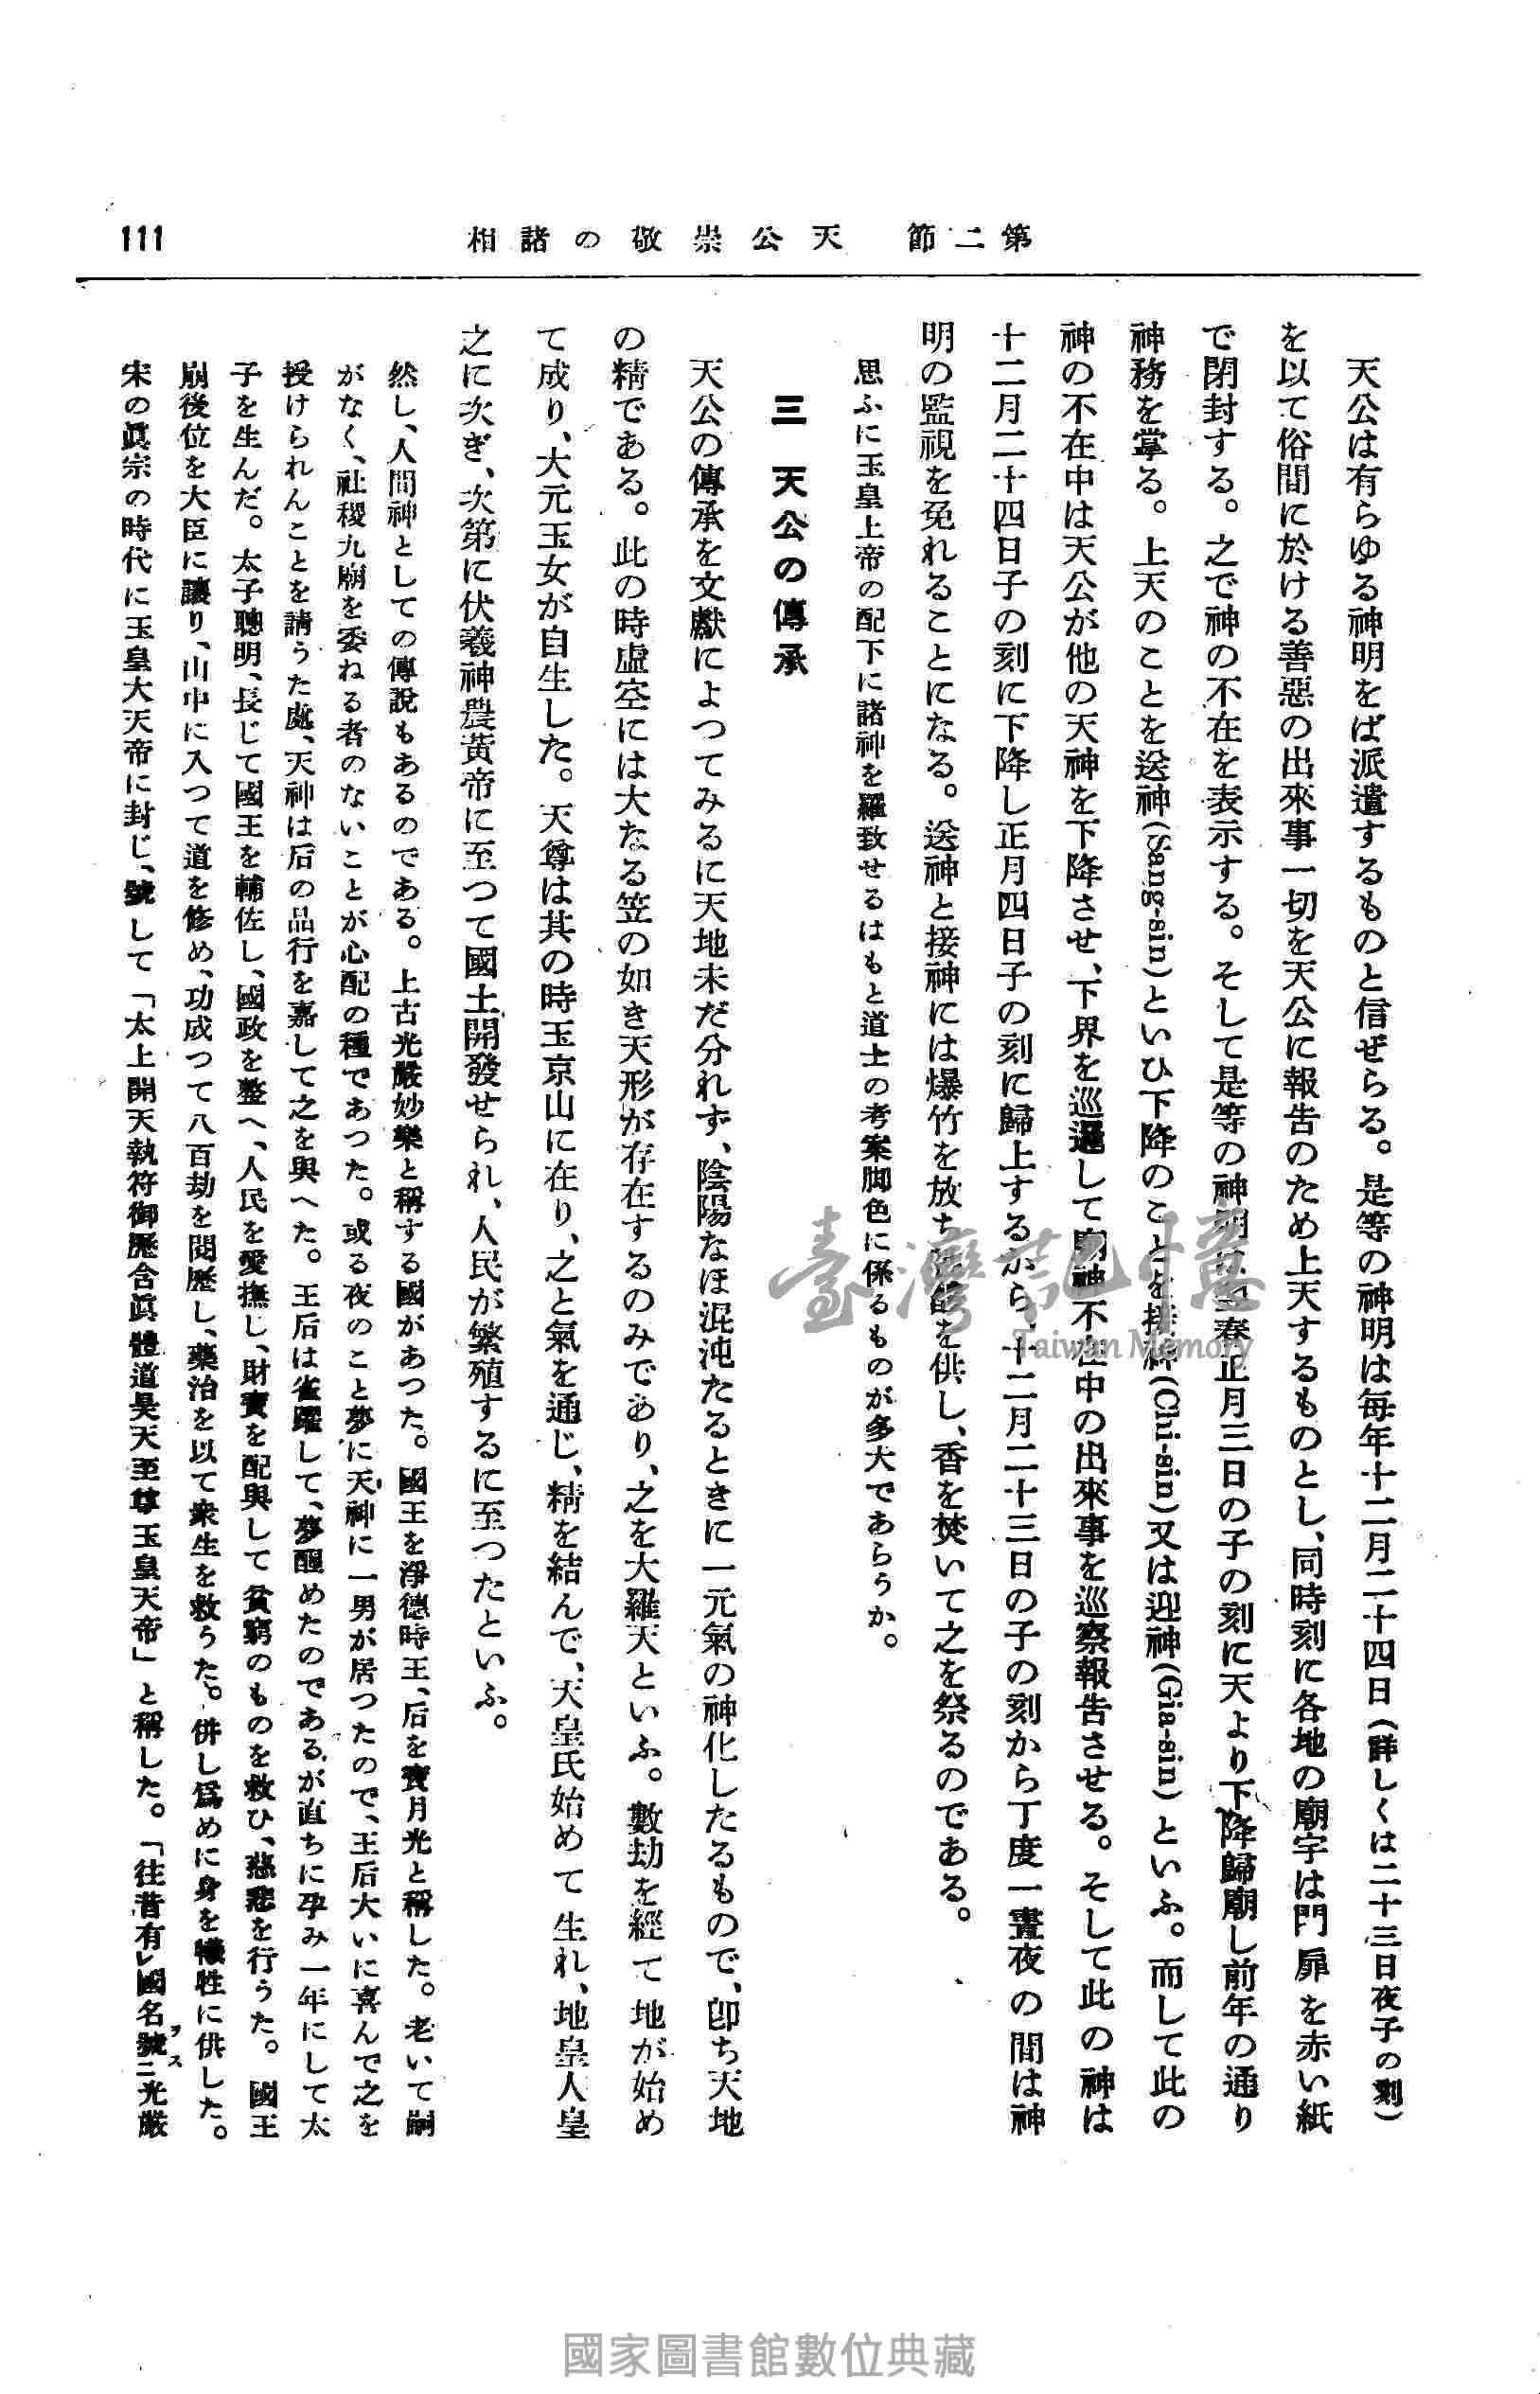 第二節 天公崇敬の諸相
111
天公は有らゆる神明をば派遣するものと信ぜらる。是等の神明は毎年十二月二十四日(詳しくは二十三日夜子の刻)
を以て俗間に於ける善惡の出來事一切を天公に報告のため上天するものとし、同時刻に各地の廟宇は門扉を赤い紙
で閉封する。之で神の不在を表示する。そして是等の神明は 春正月三日の子の刻に天より下降歸廟し前年の通り
神務を掌る。上天のことを送神(Sang-sin)といひ下降のことを接神(Chi-sin)又は迎神(Gia-sin)といふ。而して此の
神の不在中は天公が他の天神を下降させ、下界を巡邏して廟神不在中の出來事を巡察報告させる。そして此の神は
十二月二十四日子の刻に下降し正月四日子の刻に歸上するから、十二月二十三日の子の刻から丁度一晝夜の間は神
明の監視を免れることになる。送神と接神には爆竹を放ち を供し、香を焚いて之を祭るのである。
思ふに玉皇上帝の配下に諸神を羅致せるはもと道士の考案脚色に係るものが多大であらうか。
三 天公の傳承
天公の傳承を文獻によつてみるに天地未だ分れず、陰陽なほ混沌たるときに一元氣の神化したるもので、卽ち天地
の精である。此の時虛空には大なる笠の如き天形が存在するのみであり、之を大羅天といふ。數劫を經て地が始め
て成り、大元玉女が自生した。天尊は其の時玉京山に在り、之と氣を通じ、精を結んで、天皇氏始めて生れ、地皇人皇
之に次ぎ、次第に伏羲神農黃帝に至つて國土開發せられ、人民が繁殖するに至つたといふ。
然し、人間神としての傳說もあるのである。上古光嚴妙樂と稱する國があつた。國王を淨德時王、后を寶月光と稱した。老いて嗣
がなく、社稷九廟を委ねる者のないことが心配の種であつた。或る夜のこと夢に天神に一男が居つたので、王后大いに喜んで之を
授けられんことを請うた處、天神は后の品行を嘉して之を與へた。王后は雀躍して、夢醒めたのであるが直ちに孕み一年にして太
子を生んだ。太子聰明、長じて國王を輔佐し、國政を整へ、人民を愛撫し、財寶を配與して貧窮のものを救ひ、慈悲を行うた。國王
崩後位を大臣に讓り、山中に入つて道を修め、功成つて八百劫を閱歷し、藥治を以て衆生を救うた。併し爲めに身を犧牲に供した。
宋の眞宗の時代に玉皇大天帝に封じ、號して「太上開天執符御歷含眞體道昊天至尊玉皇天帝」と稱した。「往昔有レ國名號ヲスニ光嚴
臺灣記憶
Taiwan Memory
國家圖書館數位典藏